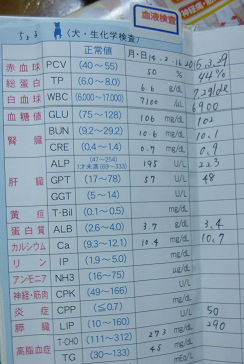 血液検査
(犬・生化学検査)
正常値 月・日 14.2.16 2015.
赤血球 PCV (40〜55) 50 % 44%
総蛋白 TP (6.0〜8.0) 6.6 g/dl 7.2g/dl
白血球 WBC (6,000〜17,000) 7100 /μl 6900
血糖値 GLU (75〜128) 106 mg/dl 102
腎臓 BUN (9.2〜29.2) 10.6 mg/dl 10.1
CRE (0.4〜1.4) 0.7 mg/dl 0.9
肝臓 ALP (47〜254) 1才未満(69〜333) 195 U/L 223
GPT (17〜78) 57 U/L 48
GGT (5〜14) U/L
黄疸 T-Bil (0.1〜0.5) mg/dl
蛋白質 ALB (2.6〜4.0) 3.7 g/dl 3.4
カルシウム Ca (9.3〜12.1) 10.4 mg/dl 10.7
リン IP (1.9〜5.0) mg/dl
アンモニア NH3 (16〜75) μg/dl
神経・筋肉 CPK (49〜166) U/L
炎症 CPP (≦0.7) mg/dl 50
膵臓 LIP (10〜160) U/L 290
高脂血症 T-CHO (111〜312) 273 mg/dl
TG (30〜133) 45 mg/dl